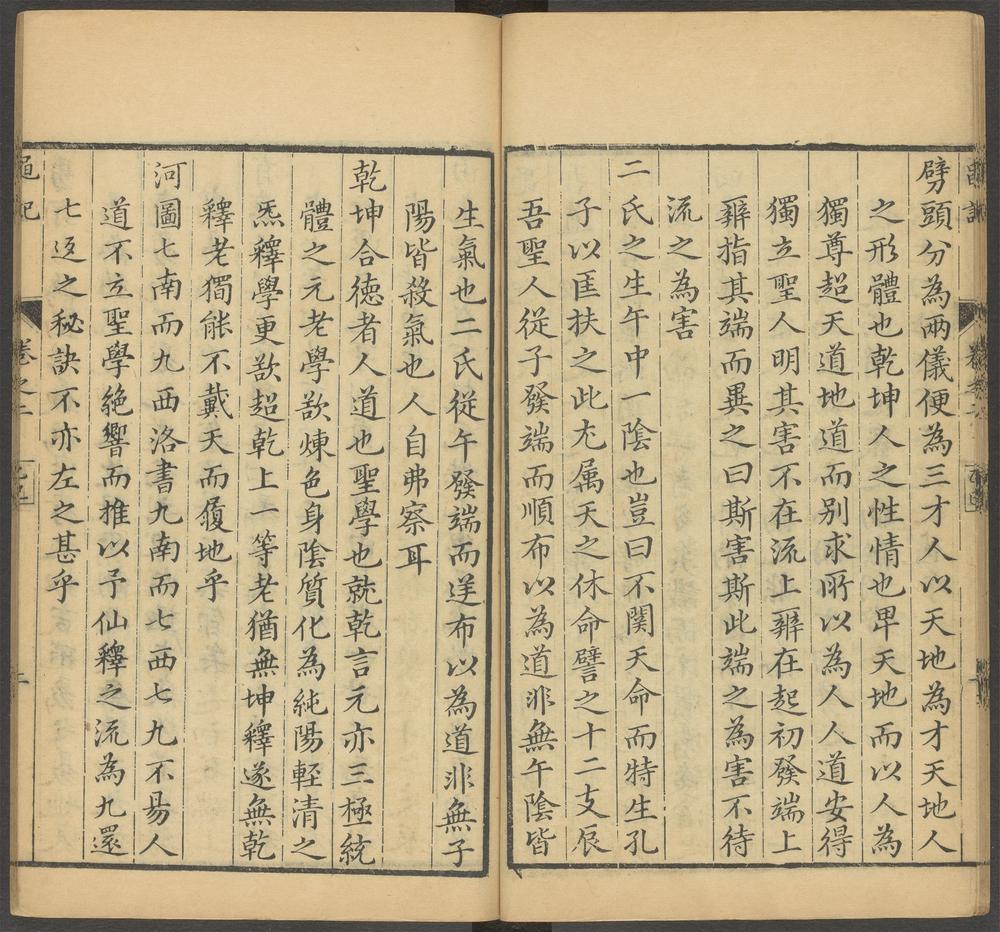 劈頭分為兩儀便為三才人以天地為才天地人
之形體也乾坤人之性情也卑天地而以人為
獨尊超天道地道而别求所以為人人道安得
獨立聖人明其害不在流上辨在起初發端上
辨指其端而異之曰斯害斯此端之為害不待
流之為害
二氏之生午中一陰也豈曰不關天命而特生孔
子以匡扶之此尤属天之休命譬之十二支辰
吾聖人從子發端而順布以為道非無午陰皆
生氣也二氏從午發端而逆布以為道非無子
陽皆殺氣也人自弗察耳
乾坤合德者人道也聖學也就乾言元亦三極統
體之元老學欲煉色身陰質化為純陽輕清之
炁釋學更欲超乾上一等老猶無坤釋遂無乾
釋老獨能不戴天而履地乎
河圖七南而九西洛書九南而七西七九不易人
道不立聖學絕響而推以予仙釋之流為九還
七返之秘訣不亦左之甚乎
卷之二